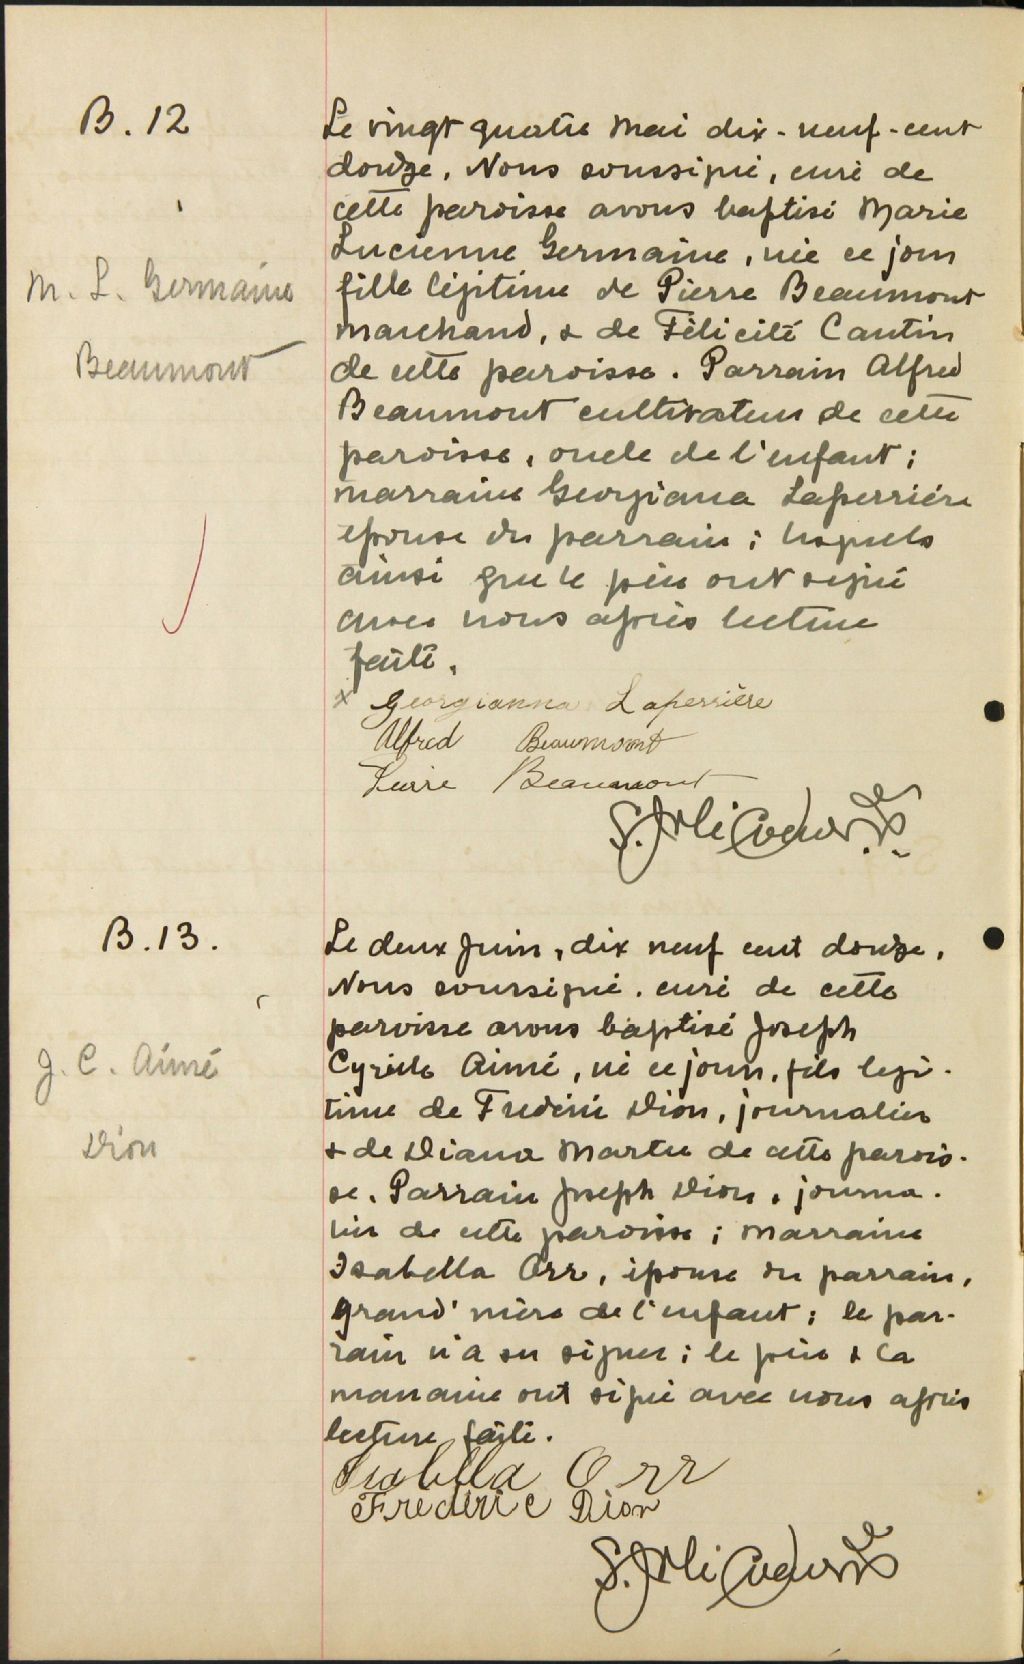 B. 12
Le vingt quatre Mai dix-neuf-cent
douze, Nous soussigné, curé de
cette paroisse avons baptisé Marie
Lucienne Germaine, née ce jour
M. L. Germaine
fille légitime de Pierre Beaumont
marchand, & de Félicité Cantin
Beaumont
de cette paroisse. Parrain Alfred
Beaumont cultivateur de cette
paroisse, oncle de l'enfant;
marraine Georgiana Laperrière
épouse du parrain; lesquels
ainsi que le père ont signé
avec nous après lecture
faite.
x Georgianna Laperrière
Alfred Beaumont
Pierre Beaumont
B. 13.
Le deux Juin, dix neuf cent douze,
Nous soussigné, curé de cette
paroisse avons baptisé Joseph
J. C. Aimé
Cyrille Aimé, né ce jour, fils légi-
time de Frédéric Dion, journalier
Dion
& de Diana Martee de cette parois-
se. Parrain Joseph Dion, journa-
lier de cette paroisse; marraine
Isabella Orr, épouse du parrain,
grand'mère de l'enfant; le par-
rain n'a su signer; le père & la
marraine ont signé avec nous après
lecture faite.
Isabella Orr
Frederic Dion